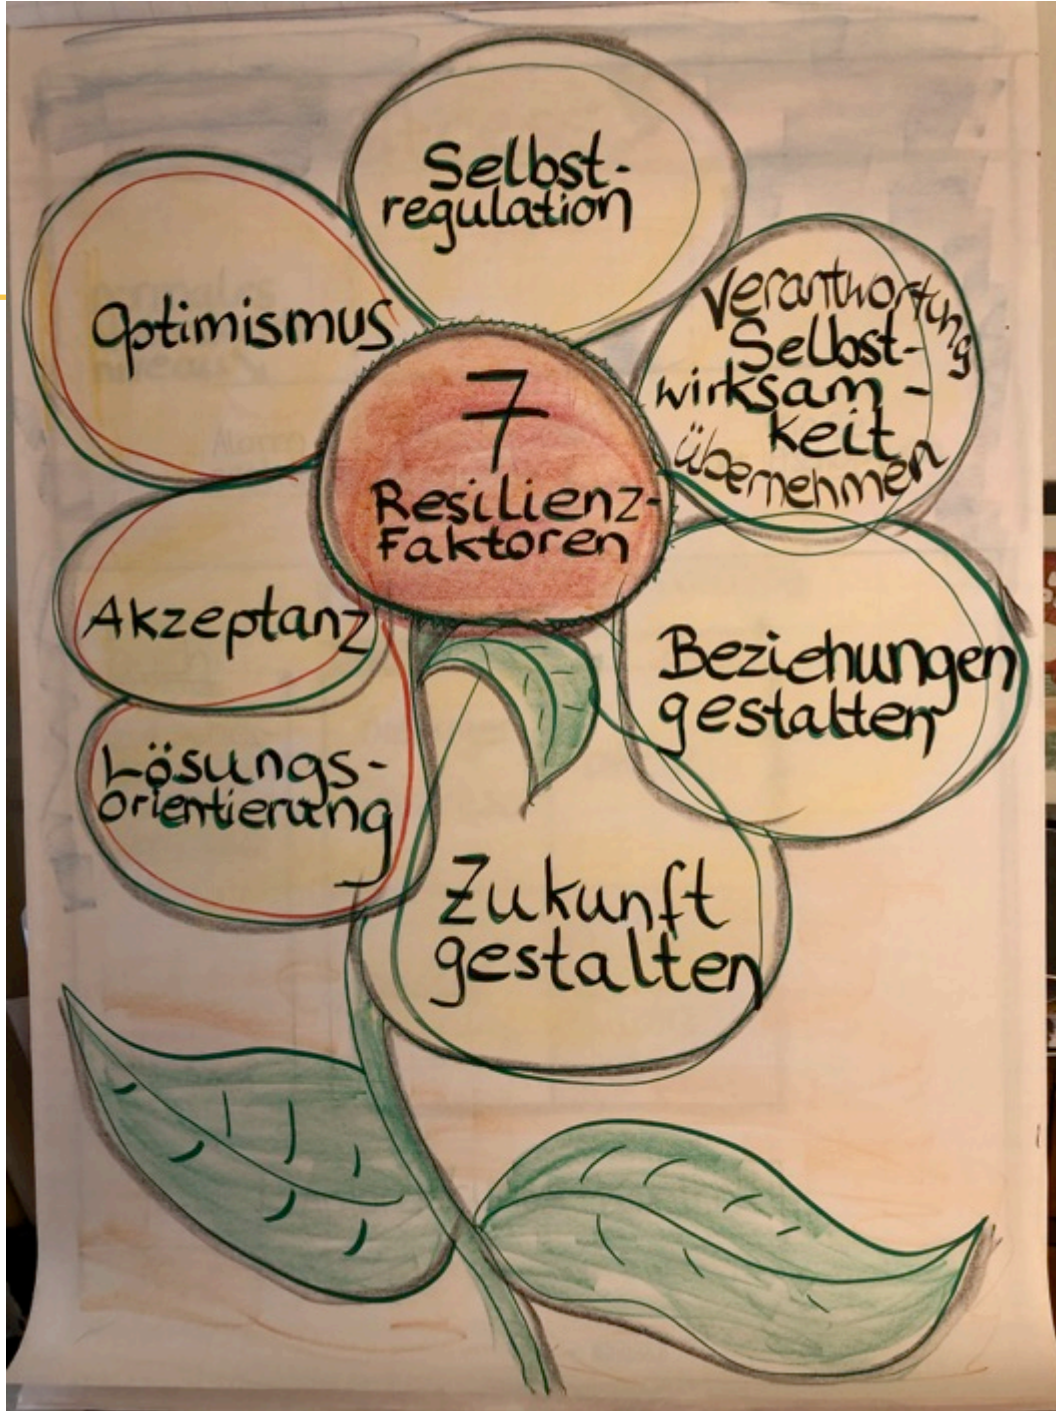 Selbst-
regulation
Optimismus
Verantwortung
Selbst-
wirksam-
keit
übernehmen
7
Resilienz-
Faktoren
Akzeptanz
Beziehungen
gestalten
Lösungs-
orientierung
Zukunft
gestalten